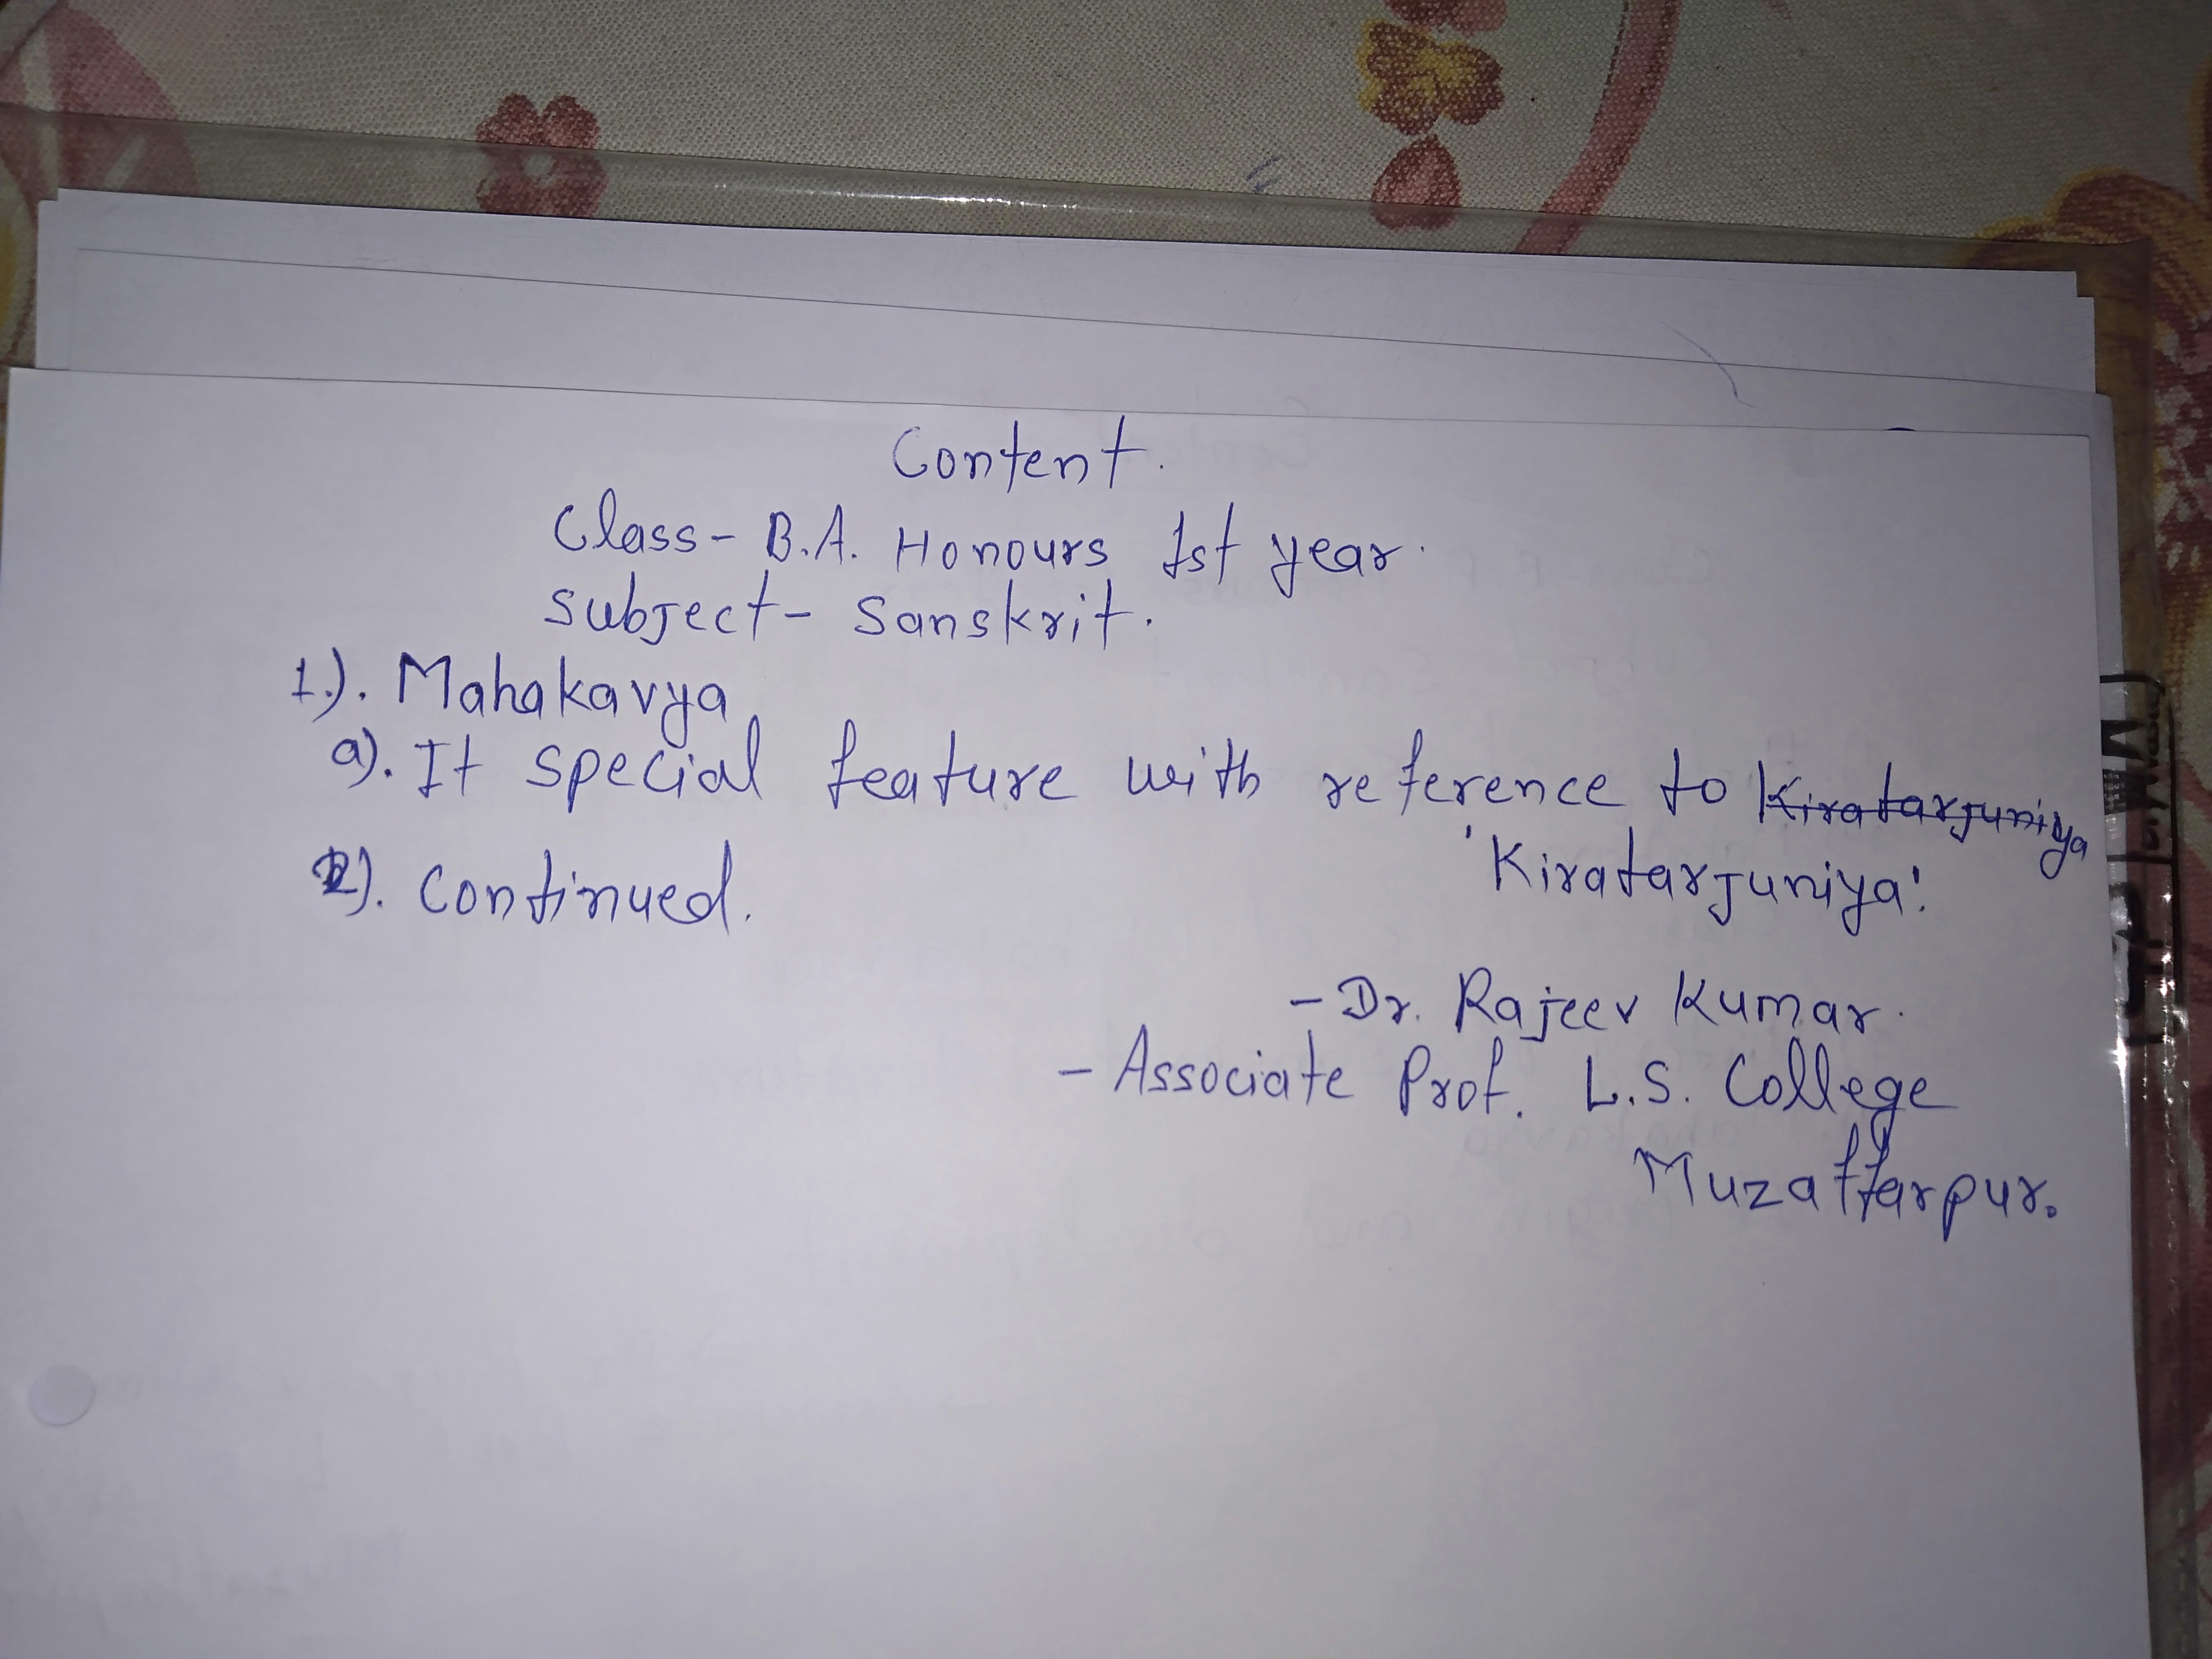 Content.
Class- B.A. Honours 1st year.
Subject- Sanskrit.
1.). Mahakavya
a). It special feature with reference to Kiratarjuniya
'Kiratarjuniya'.
2). Continued.
- Dr. Rajeev Kumar.
- Associate Prof. L.S. College
Muzaffarpur.